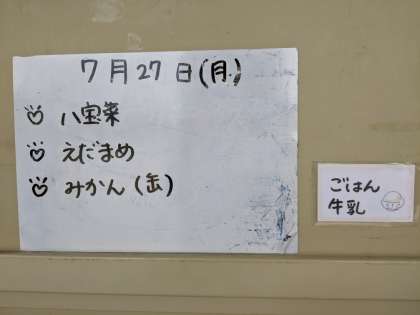 7月27日(月)
八宝菜
えだまめ
みかん(缶)
ごはん
牛乳